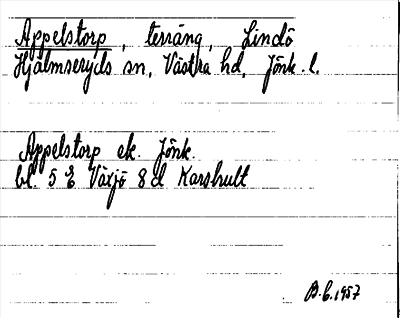 Appelstorp, terräng, Lindö
Hjälmseryds sn, Västra hd, Jönk. l.
Appelstorp ek. Jönk.
bl. 5 E Växjö 8 d Karshult
B.C. 1957